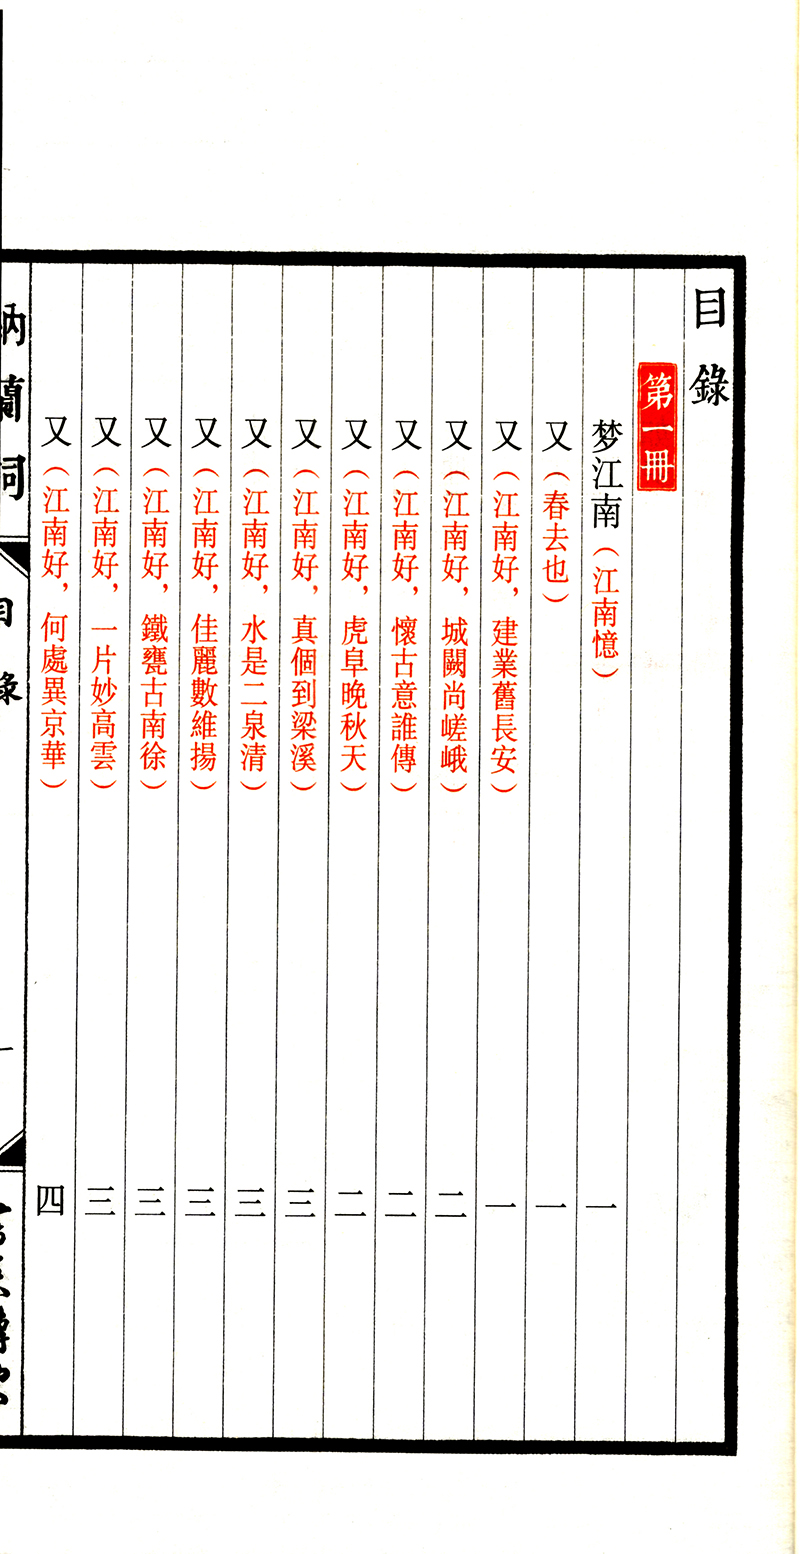 目錄
第一冊
梦江南（江南憶） 一
又（春去也） 一
又（江南好，建業舊長安） 一
又（江南好，城闕尚嵯峨） 二
又（江南好，懷古意誰傳） 二
又（江南好，虎阜晚秋天） 二
又（江南好，真個到梁溪） 三
又（江南好，水是二泉清） 三
又（江南好，佳麗數維揚） 三
又（江南好，鐵甕古南徐） 三
又（江南好，一片妙高雲） 三
又（江南好，何處異京華） 四
納蘭詞 目錄 一